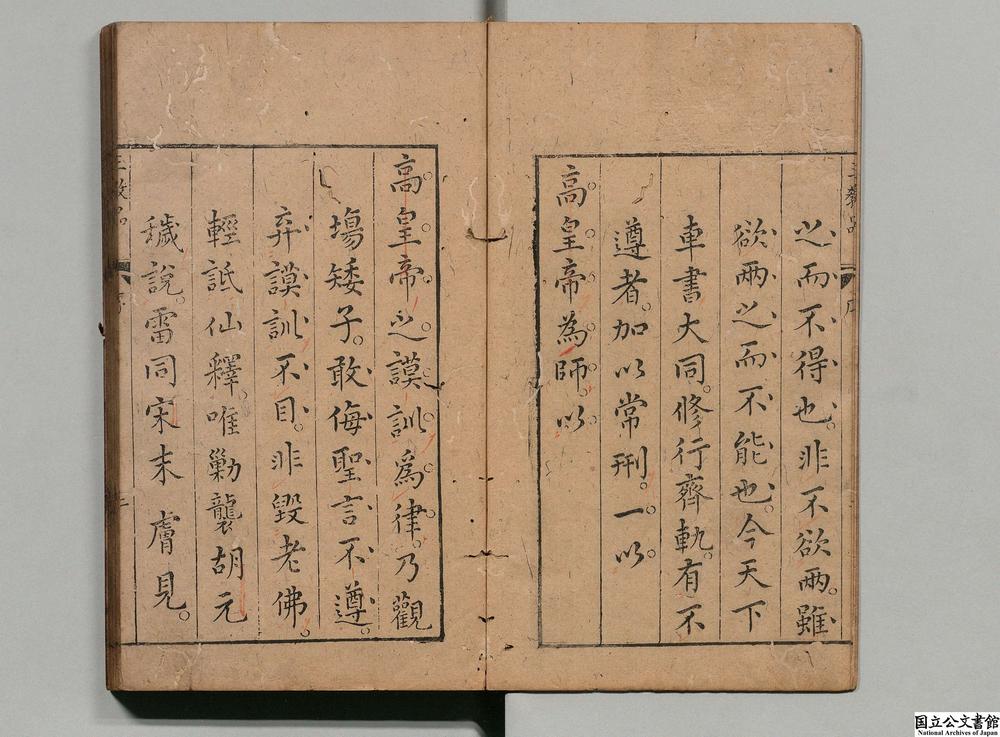 三教品 序
之而不得也。非不欲兩。雖
欲兩之而不能也。今天下
車書大同。修行齊軌。有不
遵者。加以常刑。一以
高皇帝為師。以
高皇帝之謨訓爲律。乃觀
場矮子。敢侮聖言不遵。
弃謨訓不目。非毀老佛。
輕詆仙釋。唯勦襲胡元
穢說。雷同宋末膚見。
三教品 序 二
国立公文書館
National Archives of Japan